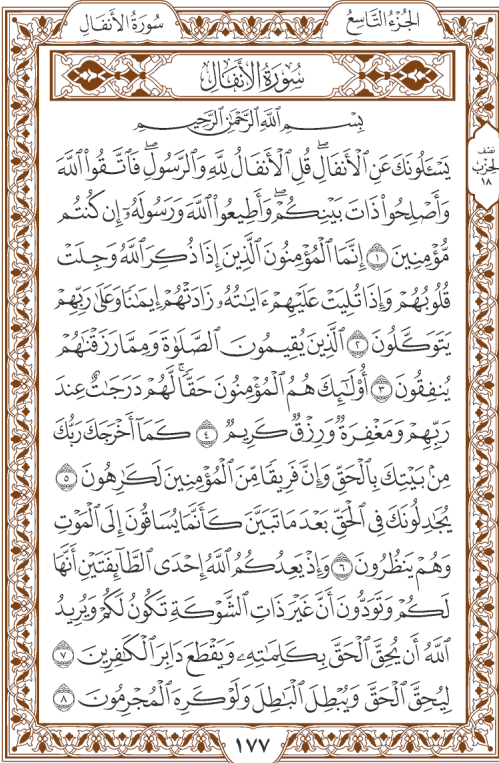 سُورَةُ الأَنفَالِ
الجُزْءُ التَّاسِعُ
سُورَةُ الأَنفَالِ
بِسْمِ اللَّهِ الرَّحْمَٰنِ الرَّحِيمِ
نصف
الحزب
١٨
يَسْـَٔلُونَكَ عَنِ ٱلْأَنفَالِۖ قُلِ ٱلْأَنفَالُ لِلَّهِ وَٱلرَّسُولِۖ فَٱتَّقُوا۟ ٱللَّهَ
وَأَصْلِحُوا۟ ذَاتَ بَيْنِكُمْۖ وَأَطِيعُوا۟ ٱللَّهَ وَرَسُولَهُۥٓ إِن كُنتُم
مُّؤْمِنِينَ ١ إِنَّمَا ٱلْمُؤْمِنُونَ ٱلَّذِينَ إِذَا ذُكِرَ ٱللَّهُ وَجِلَتْ
قُلُوبُهُمْ وَإِذَا تُلِيَتْ عَلَيْهِمْ ءَايَٰتُهُۥ زَادَتْهُمْ إِيمَٰنًا وَعَلَىٰ رَبِّهِمْ
يَتَوَكَّلُونَ ٢ ٱلَّذِينَ يُقِيمُونَ ٱلصَّلَوٰةَ وَمِمَّا رَزَقْنَٰهُمْ
يُنفِقُونَ ٣ أُو۟لَٰٓئِكَ هُمُ ٱلْمُؤْمِنُونَ حَقًّاۚ لَّهُمْ دَرَجَٰتٌ عِندَ
رَبِّهِمْ وَمَغْفِرَةٌ وَرِزْقٌ كَرِيمٌ ٤ كَمَآ أَخْرَجَكَ رَبُّكَ
مِنۢ بَيْتِكَ بِٱلْحَقِّ وَإِنَّ فَرِيقًا مِّنَ ٱلْمُؤْمِنِينَ لَكَٰرِهُونَ ٥
يُجَٰدِلُونَكَ فِى ٱلْحَقِّ بَعْدَ مَا تَبَيَّنَ كَأَنَّمَا يُسَاقُونَ إِلَى ٱلْمَوْتِ
وَهُمْ يَنظُرُونَ ٦ وَإِذْ يَعِدُكُمُ ٱللَّهُ إِحْدَى ٱلطَّآئِفَتَيْنِ أَنَّهَا
لَكُمْ وَتَوَدُّونَ أَنَّ غَيْرَ ذَاتِ ٱلشَّوْكَةِ تَكُونُ لَكُمْ وَيُرِيدُ
ٱللَّهُ أَن يُحِقَّ ٱلْحَقَّ بِكَلِمَٰتِهِۦ وَيَقْطَعَ دَابِرَ ٱلْكَٰفِرِينَ ٧
لِيُحِقَّ ٱلْحَقَّ وَيُبْطِلَ ٱلْبَٰطِلَ وَلَوْ كَرِهَ ٱلْمُجْرِمُونَ ٨
١٧٧